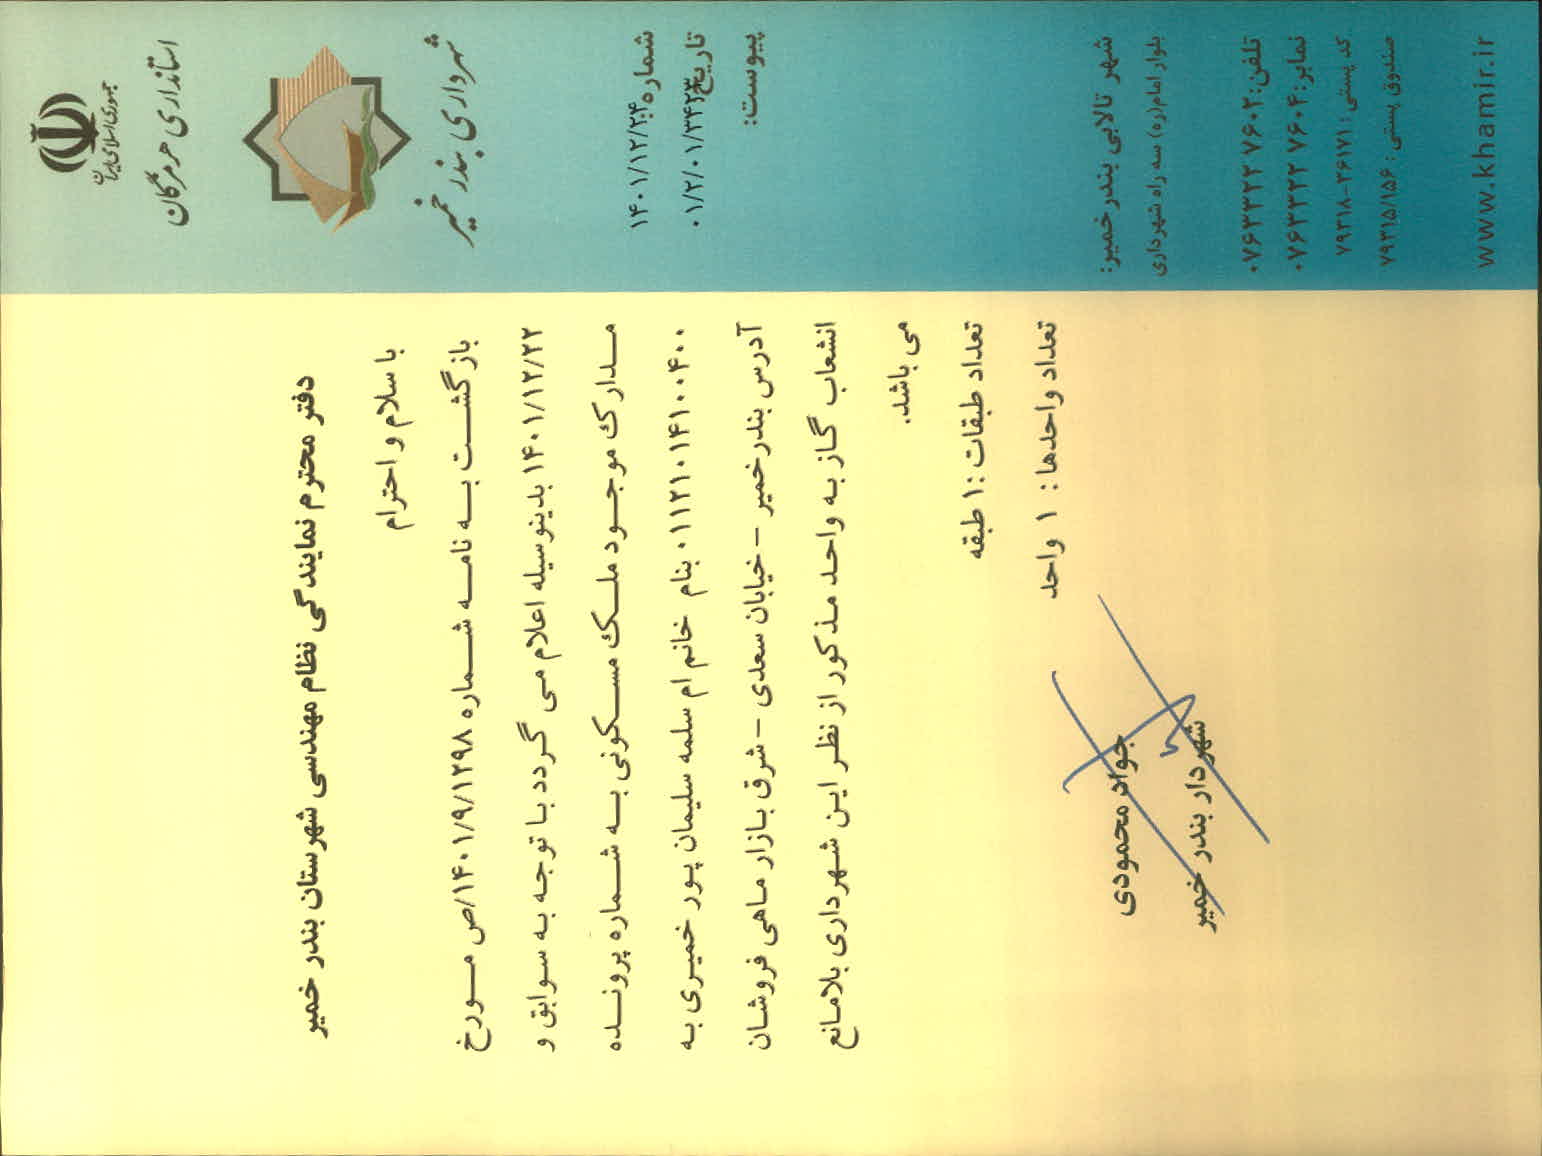 جمهوری اسلامی ایران
استانداری هرمزگان
شهرداری بندر خمیر
شماره:
۱۴۰۱/۱۲/۲۴
تاریخ:
۰۱/۲/۰۱/۳۴۲۳
پیوست:
دفتر محترم نمایندگی نظام مهندسی شهرستان بندر خمیر
با سلام و احترام
بازگشت به نامه شماره ۱۴۰۱/۹/۱۲۹۸/ص مورخ
۱۴۰۱/۱۲/۲۲ بدینوسیله اعلام می گردد با توجه به سوابق و
مدارک موجود ملک مسکونی به شماره پرونده
۰۱۱۲۱۰۱۴۱۰۰۴۰۰ بنام خانم ام سلمه سلیمان پور خمیری به
آدرس بندرخمیر - خیابان سعدی - شرق بازار ماهی فروشان
انشعاب گاز به واحد مذکور از نظر این شهرداری بلامانع
می باشد.
تعداد طبقات :۱ طبقه
تعداد واحدها : ۱ واحد
جواد محمودی
شهردار بندر خمیر
شهر تالابی بندرخمیر:
بلوار امام(ره) سه راه شهرداری
تلفن: ۰۷۶۳۳۲۲ ۷۶۰۲
نمابر: ۰۷۶۳۳۲۲ ۷۶۰۴
کد پستی: ۷۹۳۱۸-۲۶۱۷۱
صندوق پستی: ۷۹۳۱۵/۱۵۶
www.khamir.ir